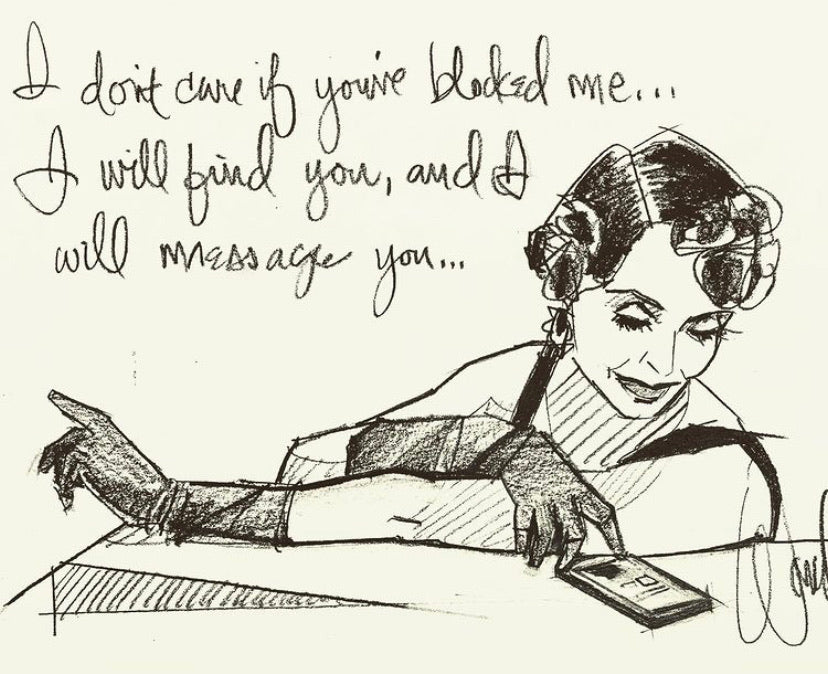 I don't care if you've blocked me...
I will find you, and I
will message you...